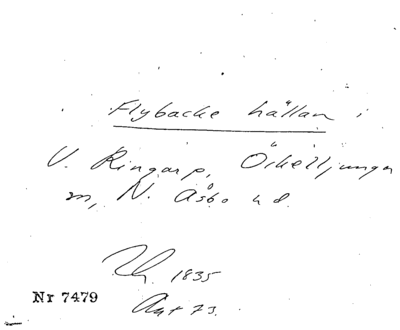 Flybacke hällan i
V. Ringarp, Örkelljunga
m, N. Åsbo hd.
1835
Nr 7479